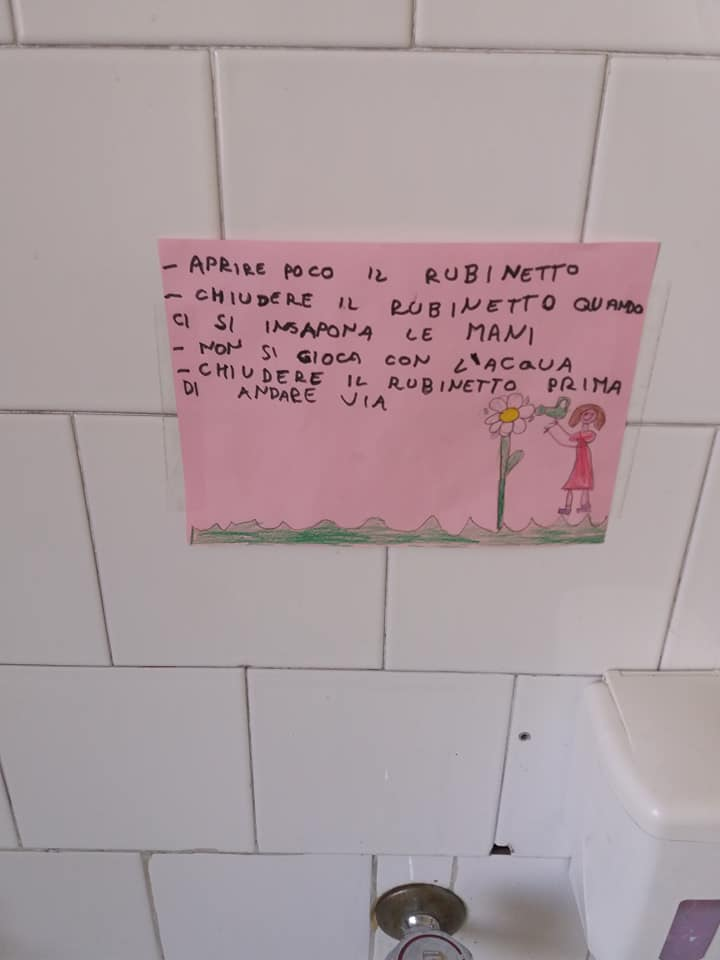 - APRIRE POCO IL RUBINETTO
- CHIUDERE IL RUBINETTO QUANDO
CI SI INSAPONA LE MANI
- NON SI GIOCA CON L'ACQUA
- CHIUDERE IL RUBINETTO PRIMA
DI ANDARE VIA